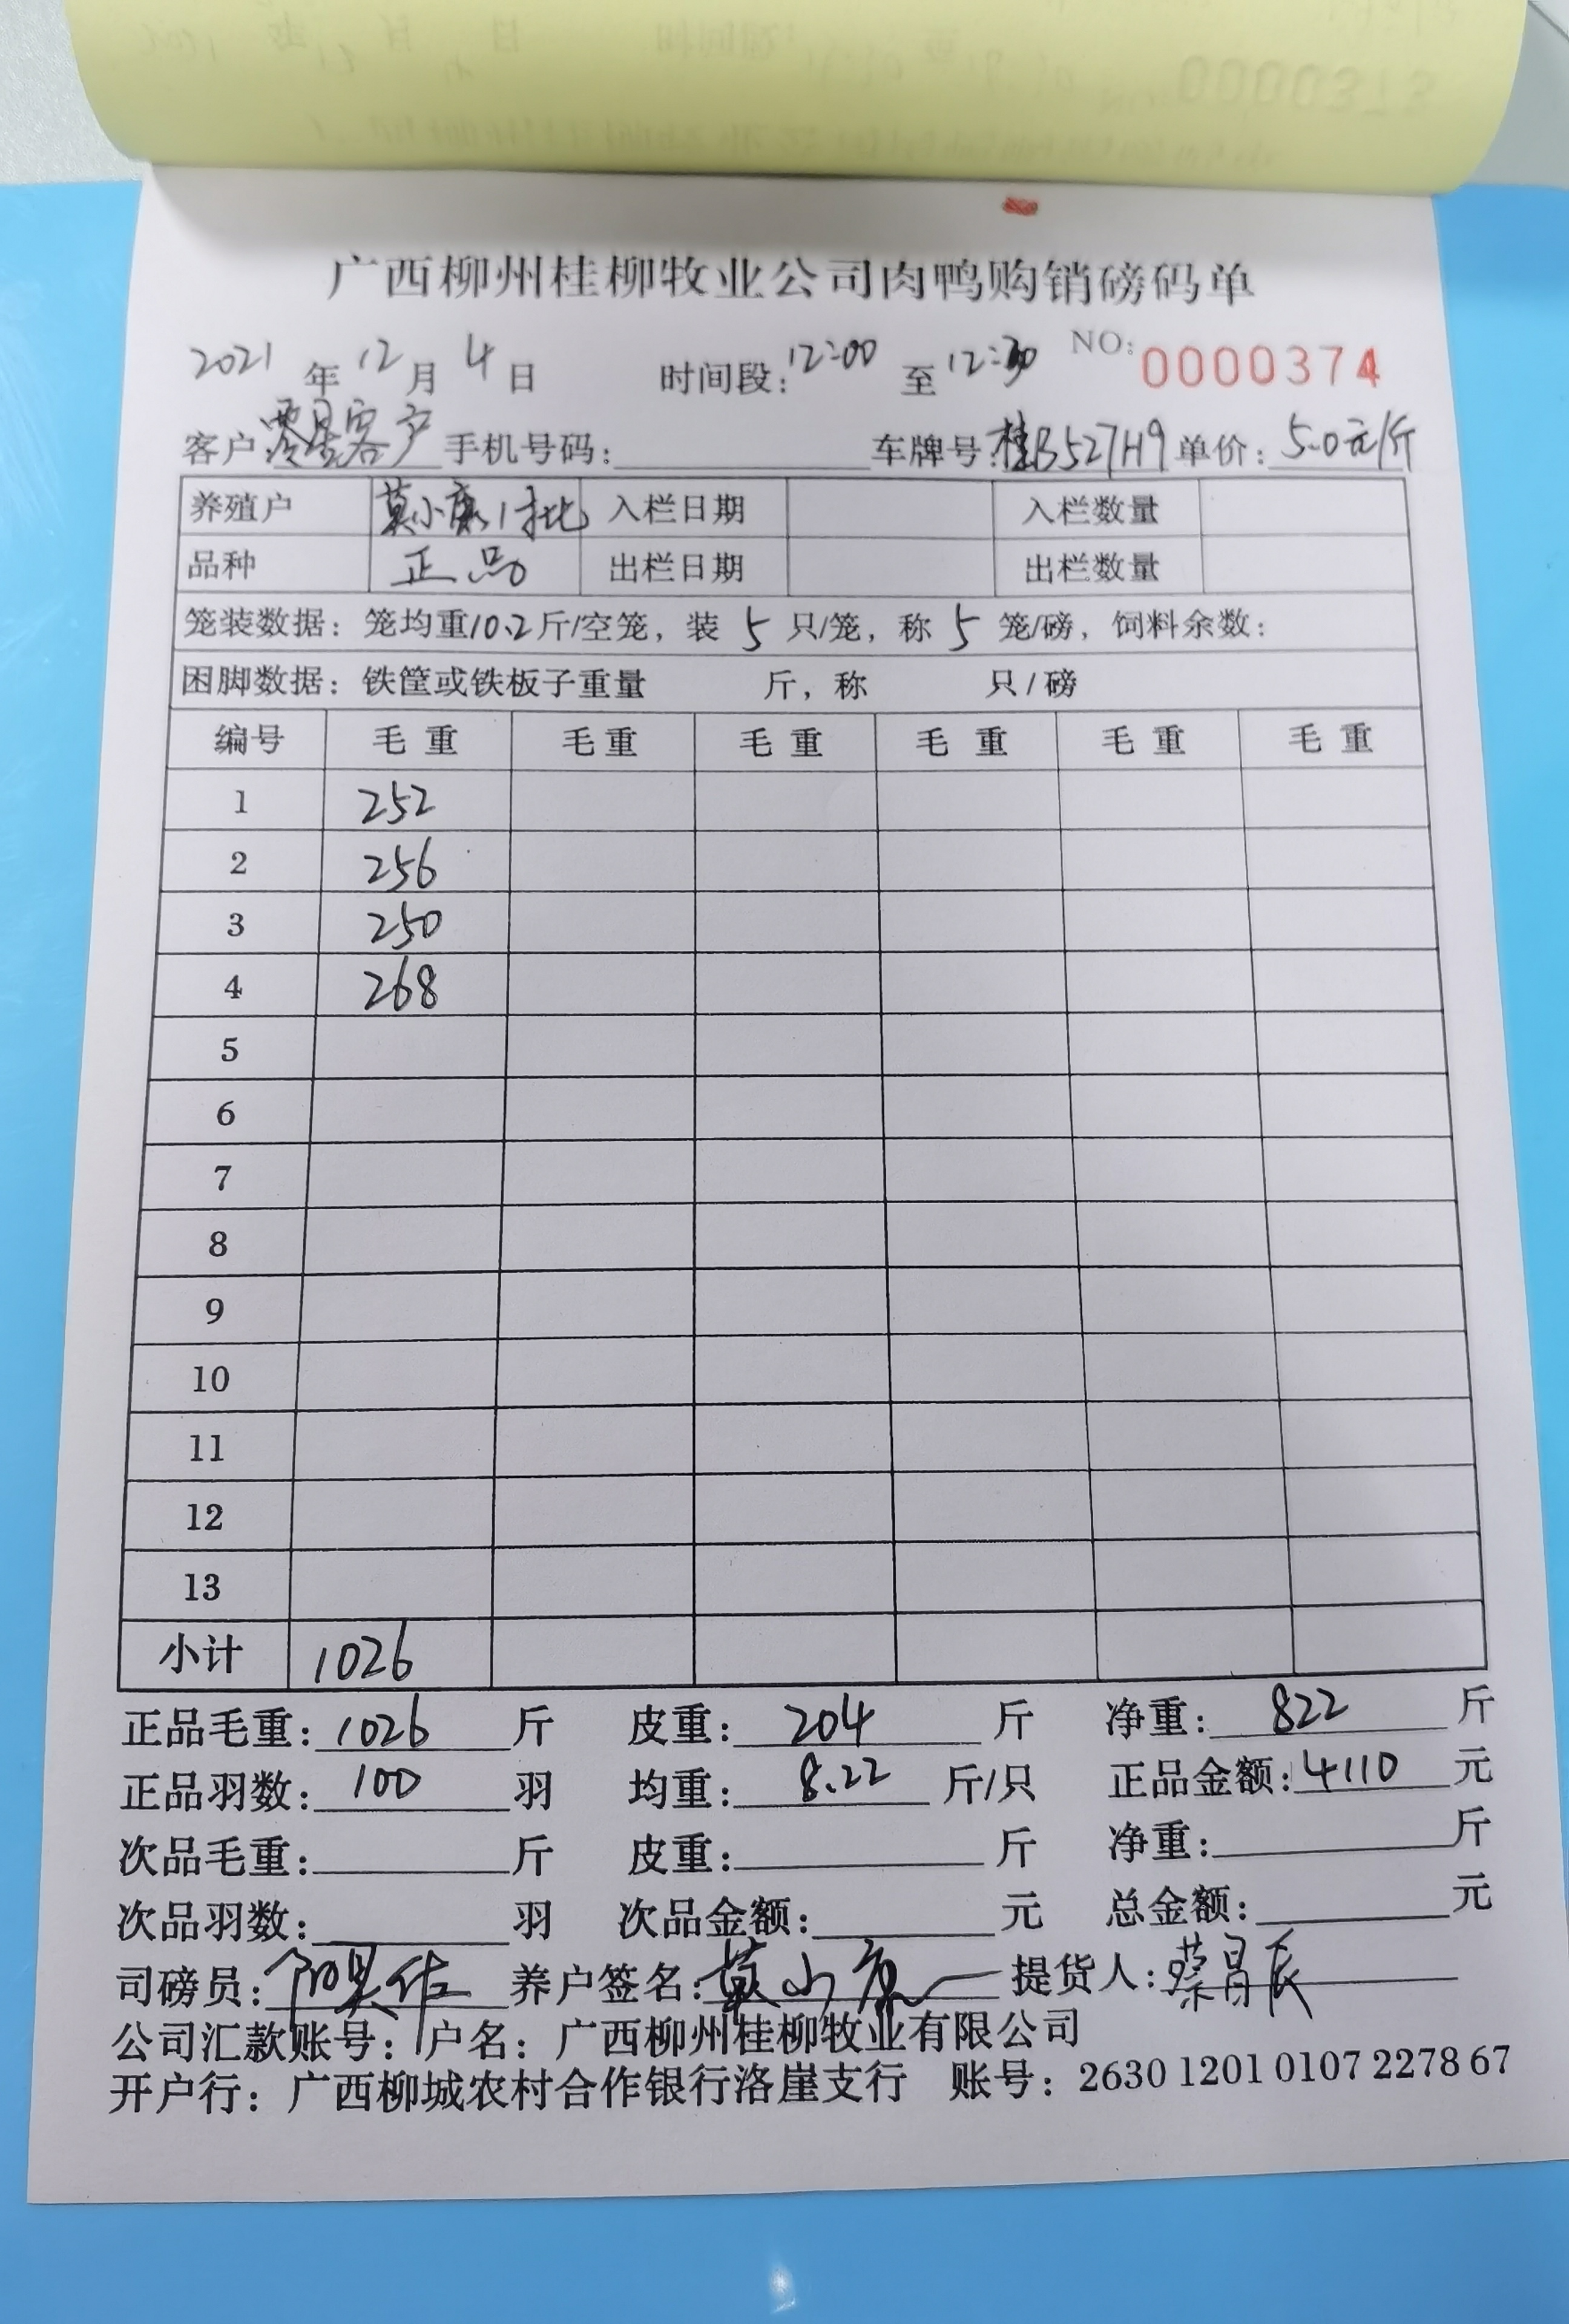 广西柳州桂柳牧业公司肉鸭购销磅码单
2021年12月4日 时间段:12:00至12:30 NO:0000374
客户:零星客户 手机号码: 车牌号:桂B527H9 单价:5.0元/斤
养殖户 莫小康1批 入栏日期 入栏数量
品种 正品 出栏日期 出栏数量
笼装数据:笼均重10.2斤/空笼,装5只/笼,称5笼/磅,饲料余数:
困脚数据:铁筐或铁板子重量 斤,称 只/磅
编号 毛重 毛重 毛重 毛重 毛重 毛重
1 252
2 256
3 250
4 268
5
6
7
8
9
10
11
12
13
小计 1026
正品毛重:1026斤 皮重:204斤 净重:822斤
正品羽数:100羽 均重:8.22斤/只 正品金额:4110元
次品毛重: 斤 皮重: 斤 净重: 斤
次品羽数: 羽 次品金额: 元 总金额: 元
司磅员: 养户签名:莫小康 提货人:蔡昌辰
公司汇款账号:户名:广西柳州桂柳牧业有限公司
开户行:广西柳城农村合作银行洛崖支行 账号:2630 1201 0107 2278 67